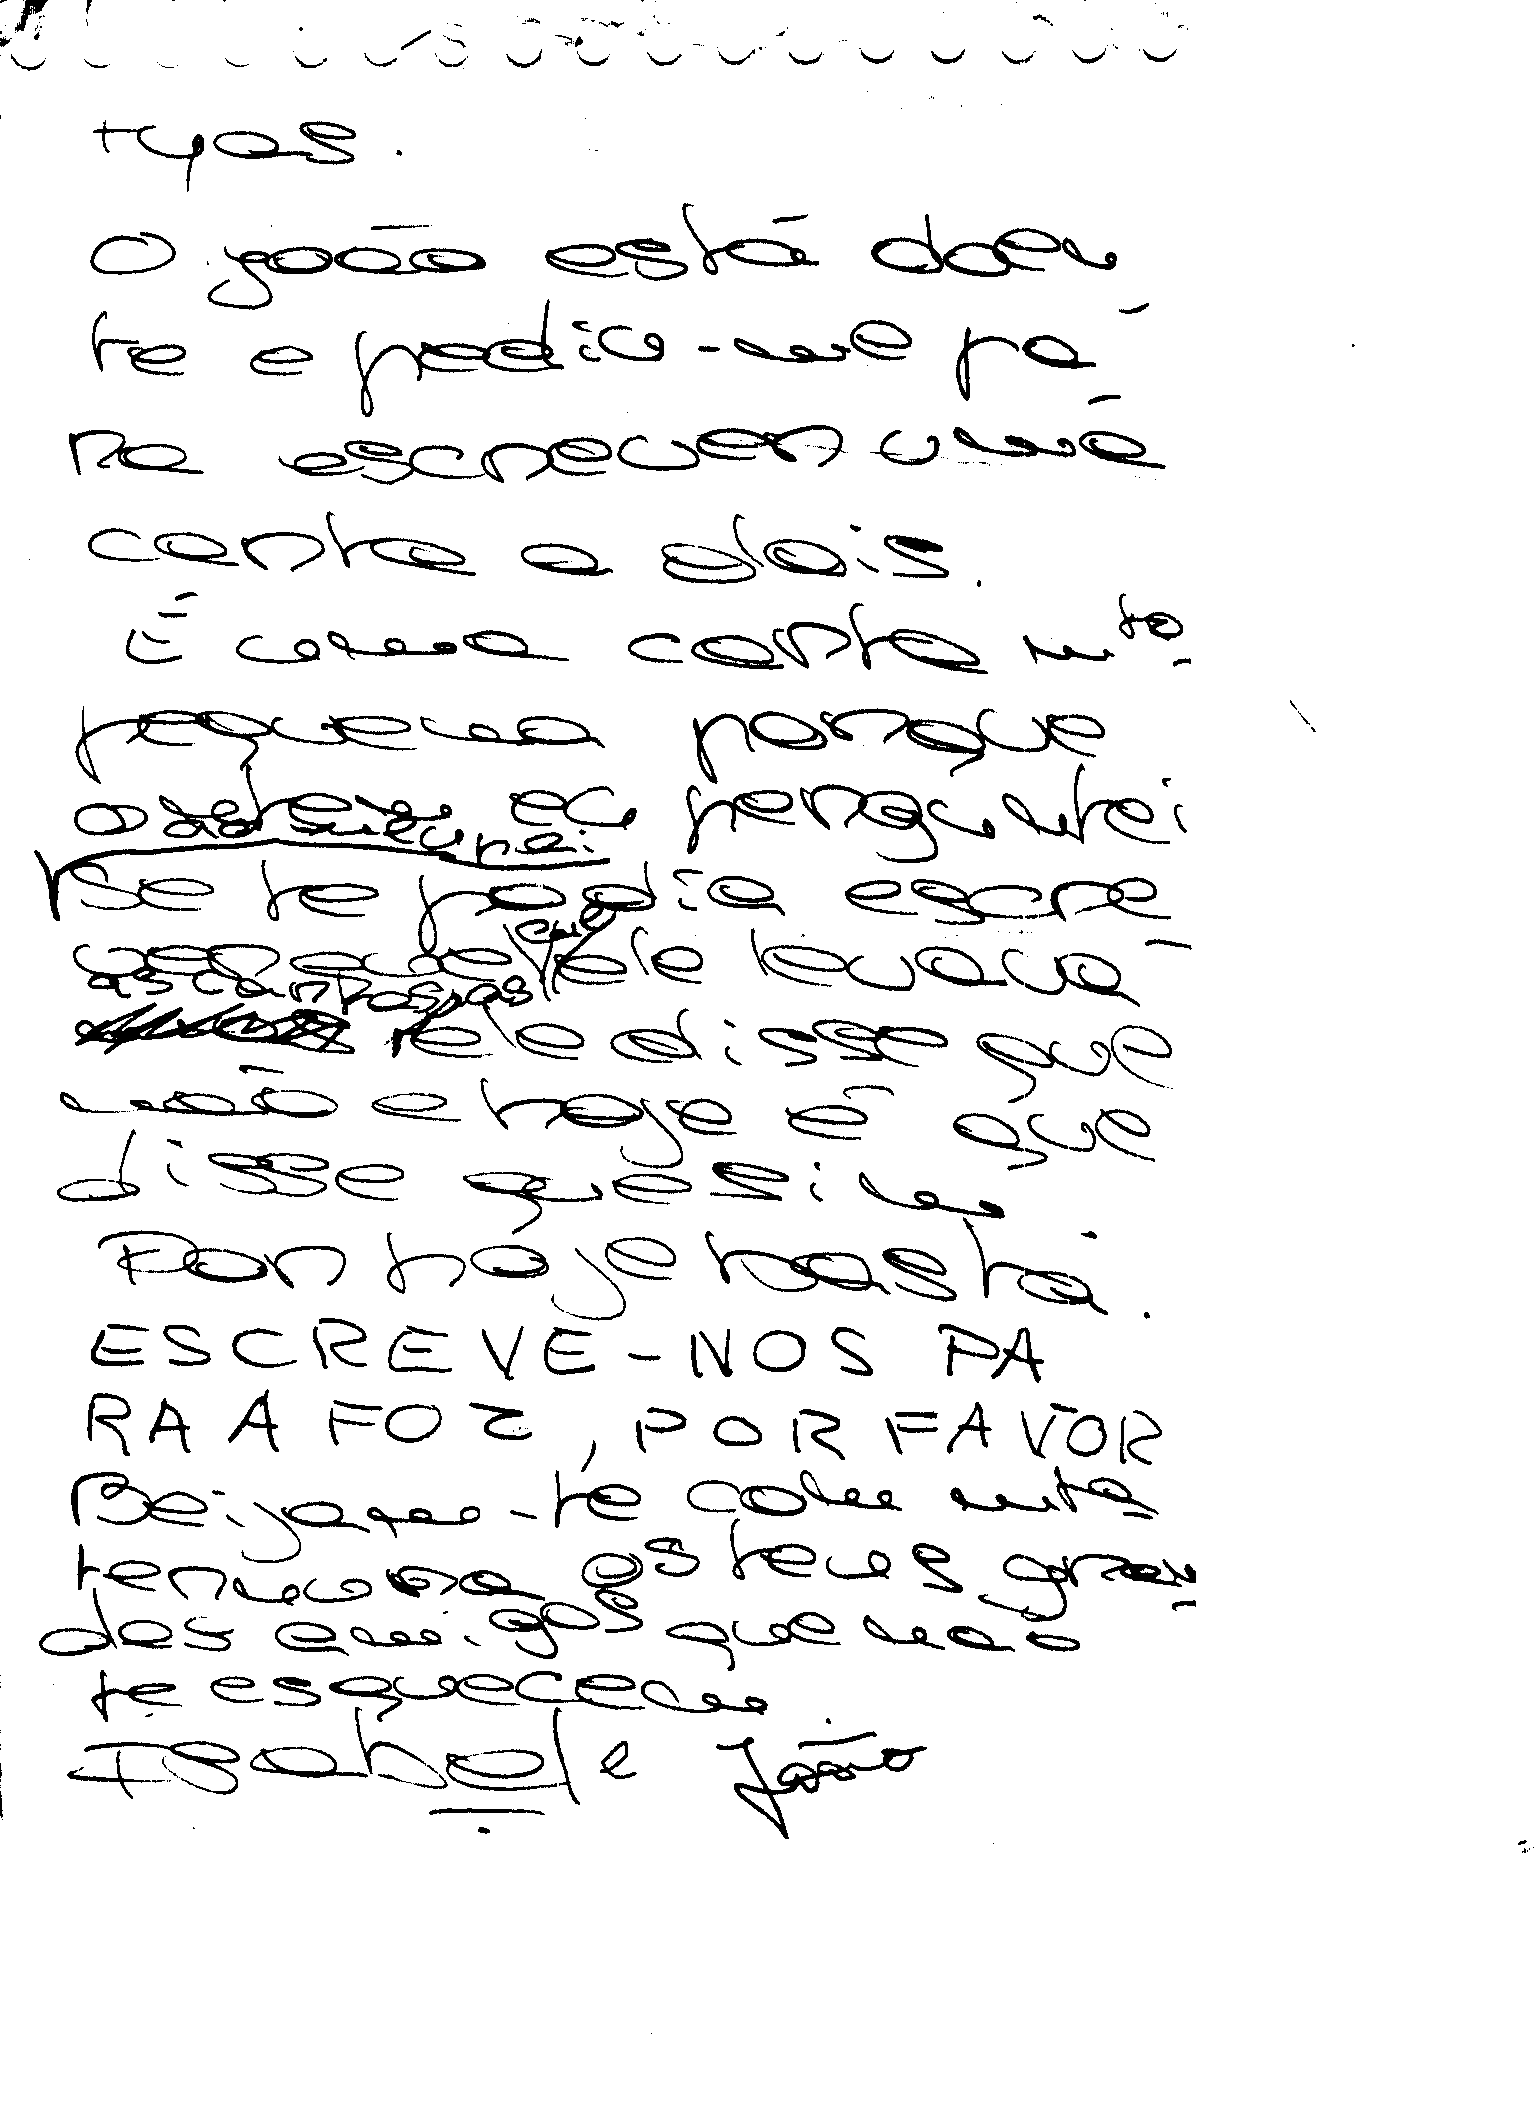 tyos.
O joão está doen
te e pediu-me pa
ra escrever uma
carta a dois.
É uma carta mto.
pequena porque
ontem eu perguntei
se te podia escre
ver ele levava
as cartas ele disse que
não e hoje é que
disse que sim
Por hoje basta.
ESCREVE-NOS PA
RA A FOZ, POR FAVOR
Beijam-te com mta
ternura os teus gran
des amigos que não
te esquecem
Isabel e João